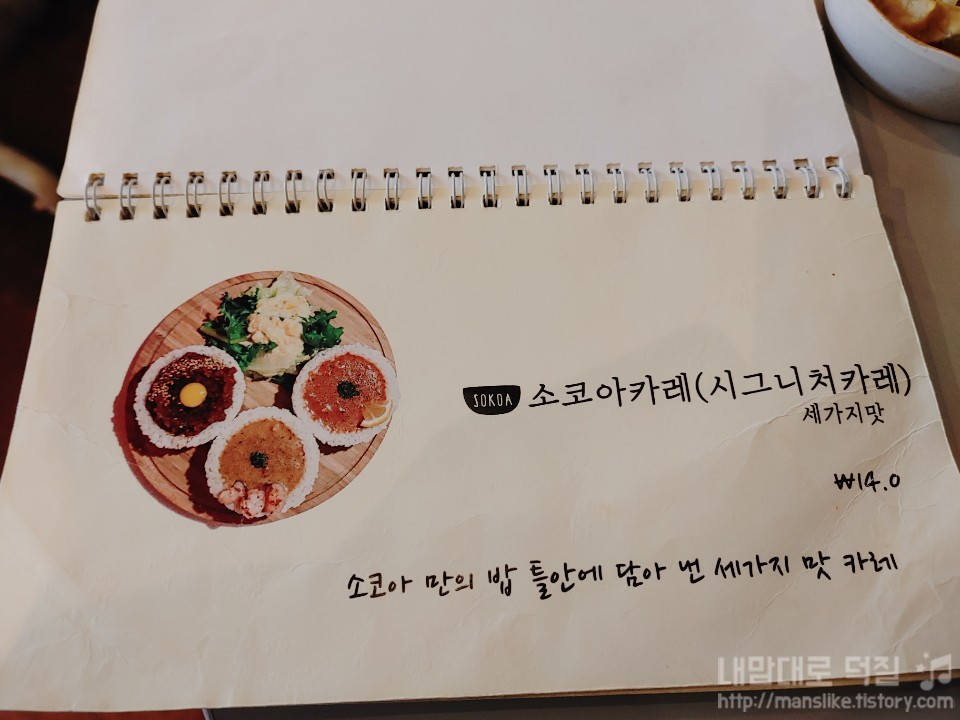 SOKOA 소코아카레(시그니처카레)
세가지맛
₩14.0
소코아 만의 밥 틀안에 담아 낸 세가지 맛 카레
내맘대로 덕질
http://manslike.tistory.com